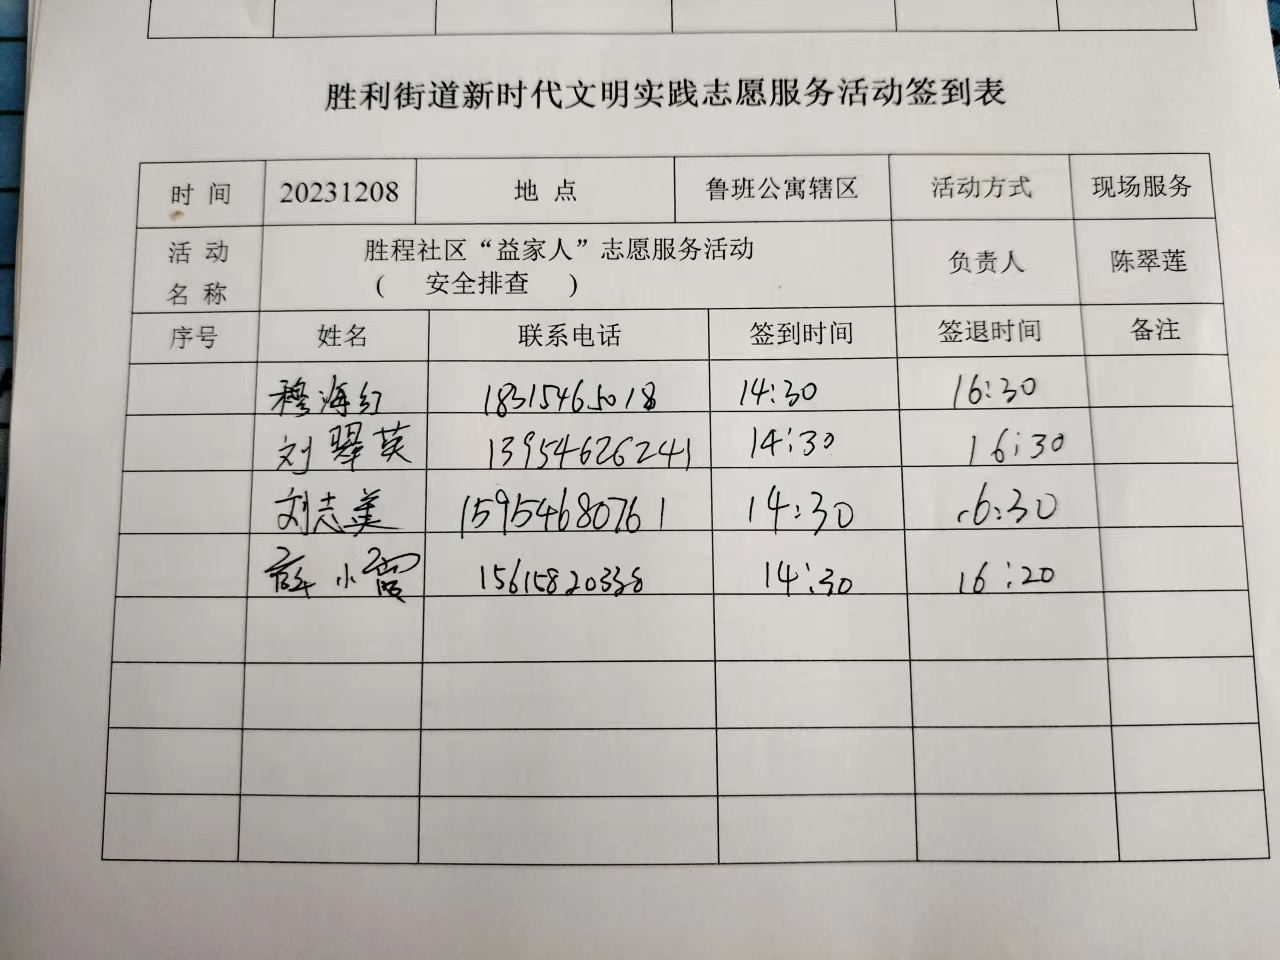 胜利街道新时代文明实践志愿服务活动签到表
时 间 20231208 地 点 鲁班公寓辖区 活动方式 现场服务
活 动 名 称 胜程社区“益家人”志愿服务活动 负责人 陈翠莲
( 安全排查 )
序号 姓名 联系电话 签到时间 签退时间 备注
穆海红 18315465018 14:30 16:30
刘翠英 13954626241 14:30 16:30
刘志美 15954680761 14:30 16:30
薛小霞 15615820338 14:30 16:20